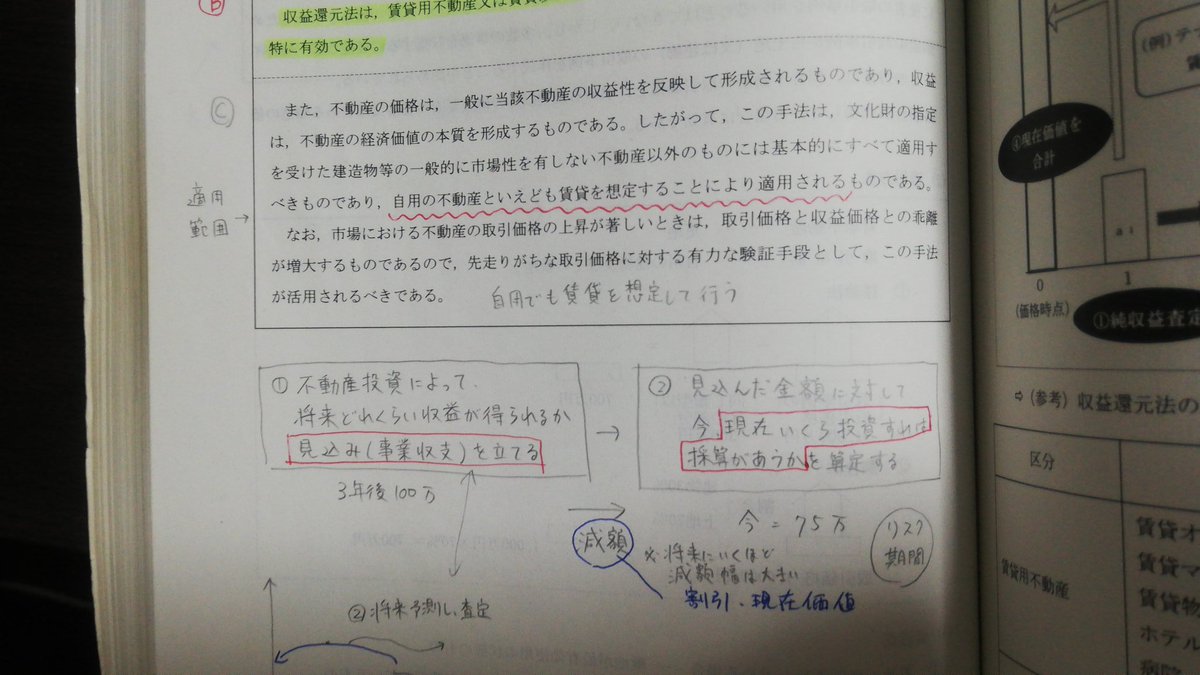 B
収益還元法は，賃貸用不動産又は賃貸
特に有効である。
C
また，不動産の価格は，一般に当該不動産の収益性を反映して形成されるものであり，収益
は，不動産の経済価値の本質を形成するものである。したがって，この手法は，文化財の指定
を受けた建造物等の一般的に市場性を有しない不動産以外のものには基本的にすべて適用す
べきものであり，自用の不動産といえども賃貸を想定することにより適用されるものである。
適用
範囲→
なお，市場における不動産の取引価格の上昇が著しいときは，取引価格と収益価格との乖離
が増大するものであるので，先走りがちな取引価格に対する有力な験証手段として，この手法
が活用されるべきである。
自用でも賃貸を想定して行う
① 不動産投資によって、
将来どれくらい収益が得られるか
見込み(事業収支)を立てる
3年後100万
→
② 見込んだ金額に対して
今、現在いくら投資すれば
採算があうかを算定する
今=75万
リスク
期間
減額
※将来にいくほど
減額幅は大きい
割引、現在価値
②将来予測し、査定
(例)テ
④現在価値を
合計
a₁
0
1
(価格時点)
①純収益査定
⇨(参考)収益還元法の
区分
賃貸用不動産
賃貸オ
賃貸マ
賃貸物
ホテル
病院